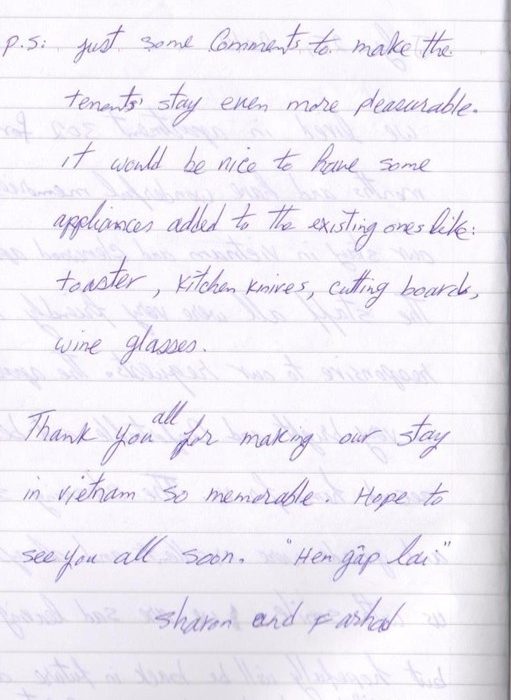 p.s: just some Comments to make the
tenents' stay even more pleasurable.
it would be nice to have some
appliances added to the existing ones like:
toaster, kitchen knives, cutting boards,
wine glasses.
Thank you all for making our stay
in vietnam so memorable. Hope to
see you all soon. "Hen gâp lai"
sharon and Farhad